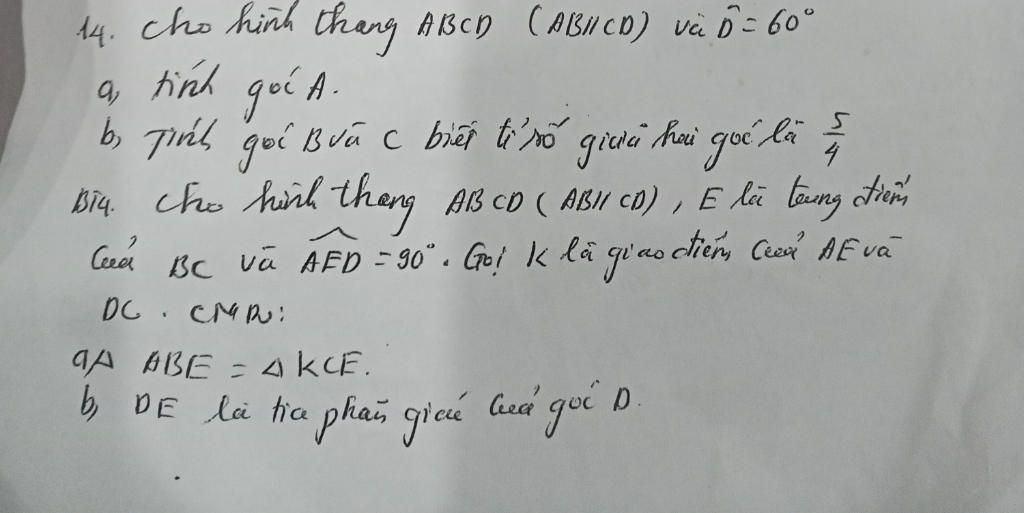 14. Cho hình thang ABCD (AB//CD) và D̂ = 60°
a, tính góc A.
b, Tính góc B và C biết tỉ số giữa hai góc là 5/4
Bi4. Cho hình thang ABCD (AB// CD), E là trung điểm
Của BC và AED = 90°. Gọi K là giao điểm Của AE và
DC. CMR:
a, Δ ABE = Δ KCE.
b, DE là tia phân giác Của góc D.